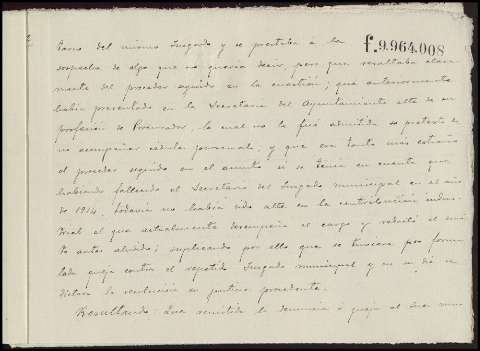 f.9.964,008
Caros del mismo Juzgado y se prestaba á la
sospecha de algo que no queria decir, pero que resaltaba clara
mente del proceder seguido en la cuestión; que anteriormente
habia presentado en la Secretaria del Ayuntamiento alta de su
profesión de Procurador, la cual no le fué admitida so pretexto de
no acompañar cédula personal, y que era tanto mas extraño
el proceder seguido en el asunto si se tenia en cuenta que
habiendo fallecido el Secretario del Juzgado municipal en el año
de 1914, todavia no habia sido alta en la contribución indus
trial el que actualmente desempeña el cargo y redactó el
auto aludido; suplicando por ello que se tuviera por formu
lada queja contra el repetido Juzgado municipal y en su dia se
dictara la resolución en justicia procedente.
Resultando: Que remitida la denuncia ó queja al Juez